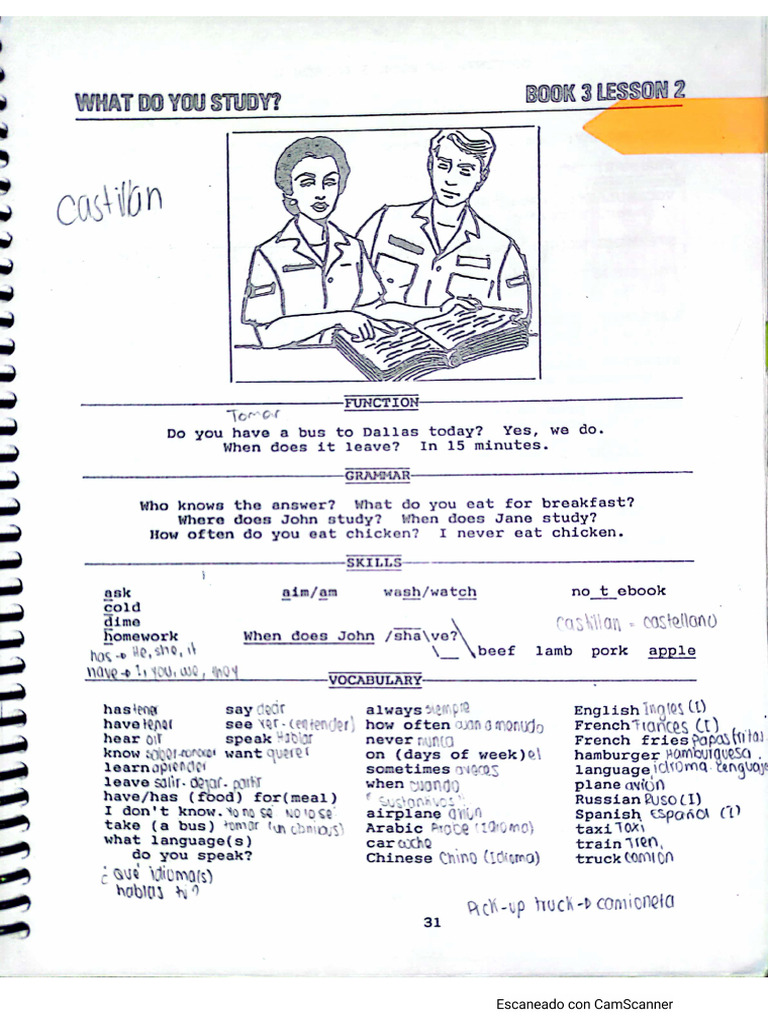 WHAT DO YOU STUDY?
BOOK 3 LESSON 2
Castillan
FUNCTION
Tomar
Do you have a bus to Dallas today? Yes, we do.
When does it leave? In 15 minutes.
GRAMMAR
Who knows the answer? What do you eat for breakfast?
Where does John study? When does Jane study?
How often do you eat chicken? I never eat chicken.
SKILLS
ask aim/am wash/watch no_t_ebook
cold
dime castillan = castellano
homework When does John /sha\ve?
\__ \beef lamb pork apple
has → He, she, it
have → I, you, we, they
VOCABULARY
has tener
have tener
hear oir
know saber-conocer
learn aprender
leave salir - dejar - partir
have/has (food) for(meal)
I don't know. Yo no sé
take (a bus) tomar (un omnibus)
what language(s)
do you speak?
¿qué idioma(s)
hablas tú?
say decir
see ver - (entender)
speak Hablar
want querer
always siempre
how often cuan a menudo
never nunca
on (days of week) el
sometimes aveces
when cuando
"sustantivos"
airplane avión
Arabic Arabe (Idioma)
car coche
Chinese Chino (Idioma)
English Ingles (I)
French Frances (I)
French fries papas fritas
hamburger Hamburguesa.
language idioma. Lenguaje
plane avión
Russian Ruso (I)
Spanish Español (I)
taxi Taxi
train Tren.
truck camión
Pick-up truck → camioneta
31
Escaneado con CamScanner